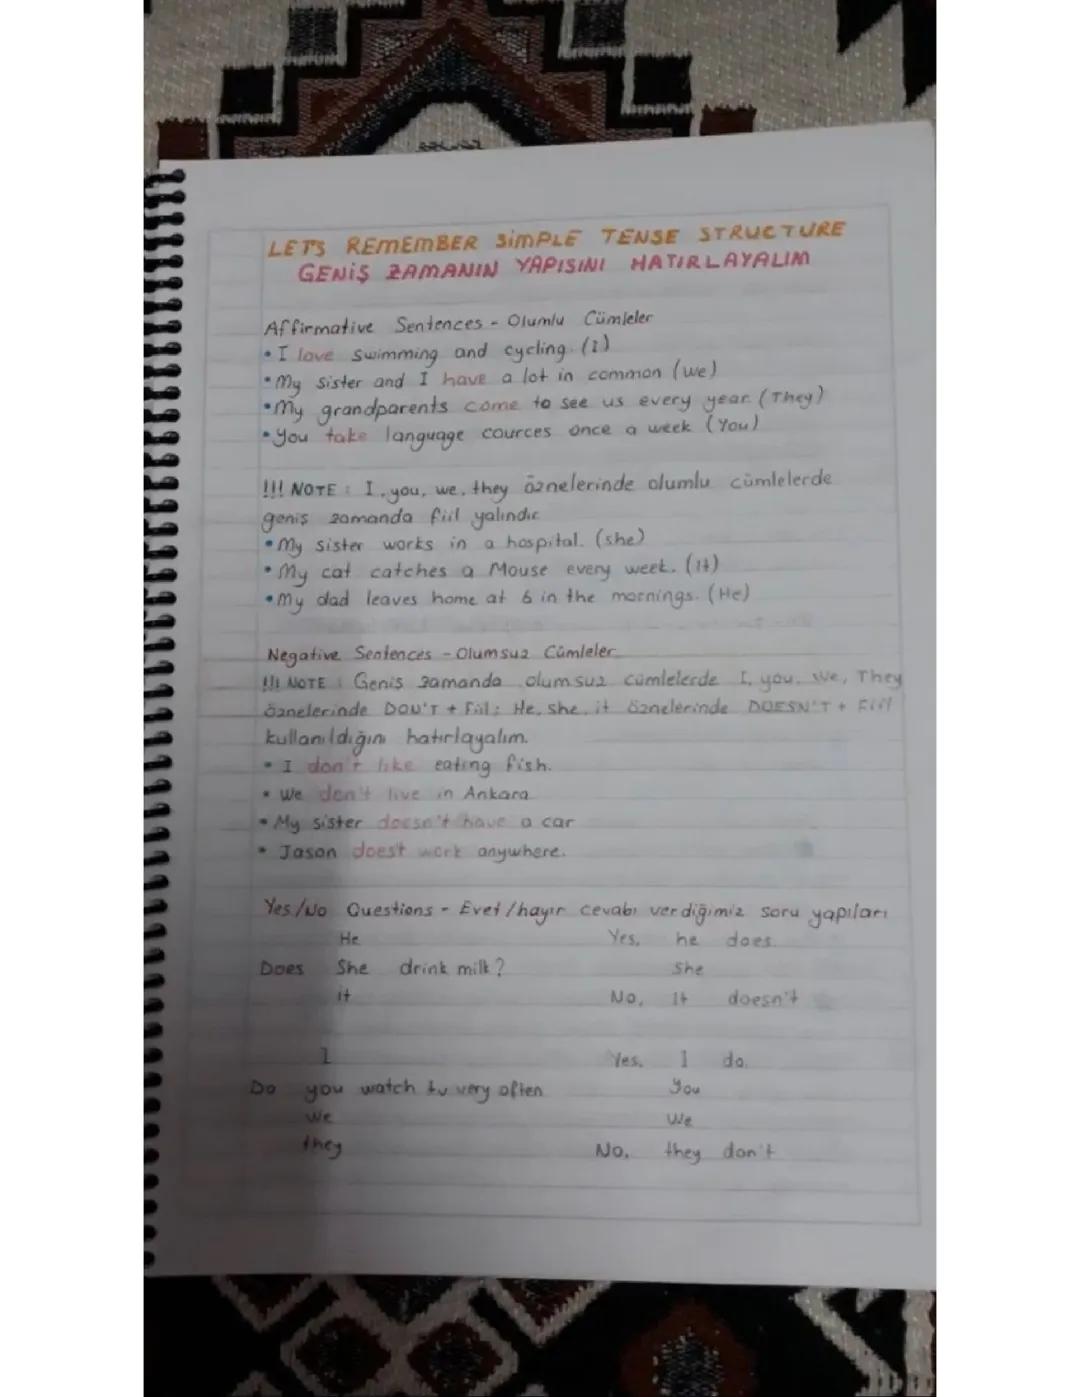 LET'S REMEMBER SİMPLE TENSE STRUCTURE
GENİŞ ZAMANIN YAPISINI HATIRLAYALIM
Affirmative Sentences - Olumlu Cümleler
• I love swimming and cycling. (I)
• My sister and I have a lot in common (we)
• My grandparents come to see us every year. (They)
• You take language cources once a week (You)
!!! NOTE : I, you, we, they öznelerinde olumlu cümlelerde
geniş zamanda fiil yalındır
• My sister works in a hospital. (she)
• My cat catches a Mouse every week. (It)
• My dad leaves home at 6 in the mornings. (He)
Negative Sentences - Olumsuz Cümleler
!!! NOTE : Geniş zamanda olumsuz cümlelerde I, you, We, They
öznelerinde DON'T + Fiil; He, she, it öznelerinde DOESN'T + Fiil
kullanıldığını hatırlayalım.
• I don't like eating fish.
• We don't live in Ankara
• My sister doesn't have a car
• Jason does't work anywhere.
Yes/No Questions - Evet/hayır cevabı verdiğimiz soru yapıları
He Yes, he does.
Does She drink milk? She
it No, It doesn't
I Yes, I do.
Do you watch tv very often You
we We
they No, they don't